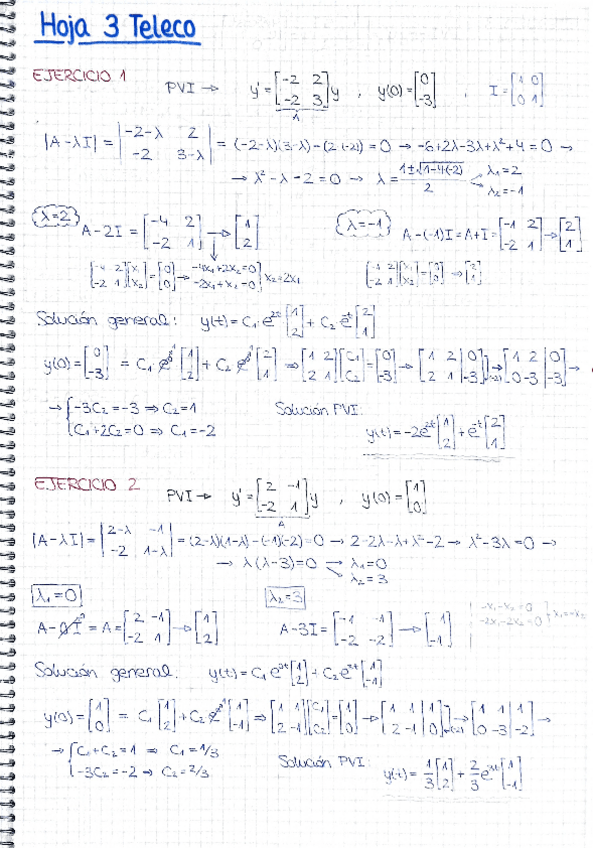 Hoja 3 Teleco
EJERCICIO 1 PVI → y' = [-2 2; -2 3] y , y(0) = [0; -3] , I = [1 0; 0 1]
A
|A-λI| = |-2-λ 2; -2 3-λ| = (-2-λ)(3-λ)-(2·(-2)) = 0 → -6+2λ-3λ+λ²+4 = 0 →
→ λ²-λ-2 = 0 → λ = (1±√1-4·(-2))/2 λ₁=2 λ₂=-1
λ=2 A-2I = [-4 2; -2 1] → [1; 2] λ=-1 A-(-1)I = A+I = [-1 2; -2 1] → [2; 1]
[-4 2; -2 1][x₁; x₂] = [0; 0] → -4x₁+2x₂=0 -2x₁+x₂=0 } x₂=2x₁ [-1 2; -2 1][x₁; x₂] = [0; 0] → [2; 1]
Solución general: y(t) = C₁·e²ᵗ[1; 2] + C₂ e⁻ᵗ[2; 1]
y(0) = [0; -3] = C₁ e⁰[1; 2] + C₂ e⁰[2; 1] ⇒ [1 2; 2 1][C₁; C₂] = [0; -3] → [1 2 | 0; 2 1 | -3] → [1 2 | 0; 0 -3 | -3] →
→ { -3C₂ = -3 ⇒ C₂ = 1 Solución PVI:
C₁+2C₂ = 0 ⇒ C₁ = -2 y(t) = -2e²ᵗ[1; 2] + e⁻ᵗ[2; 1]
EJERCICIO 2 PVI → y' = [2 -1; -2 1] y , y(0) = [1; 0]
A
|A-λI| = |2-λ -1; -2 1-λ| = (2-λ)(1-λ)-(-1)(-2) = 0 → 2-2λ-λ+λ²-2 → λ²-3λ = 0 →
→ λ(λ-3) = 0 λ₁=0 λ₂=3
λ₁=0 λ₂=3
A-0I = A = [2 -1; -2 1] → [1; 2] A-3I = [-1 -1; -2 -2] → [1; -1] -x₁-x₂=0 -2x₁-2x₂=0 } x₁=-x₂
Solución general: y(t) = C₁ e⁰ᵗ[1; 2] + C₂ e³ᵗ[1; -1]
y(0) = [1; 0] = C₁[1; 2] + C₂ e⁰[1; -1] ⇒ [1 1; 2 -1][C₁; C₂] = [1; 0] → [1 1 | 1; 2 -1 | 0] → [1 1 | 1; 0 -3 | -2] →
→ { C₁+C₂ = 1 ⇒ C₁ = 1/3 Solución PVI:
-3C₂ = -2 → C₂ = 2/3 y(t) = 1/3 [1; 2] + 2/3 e³ᵗ[1; -1]